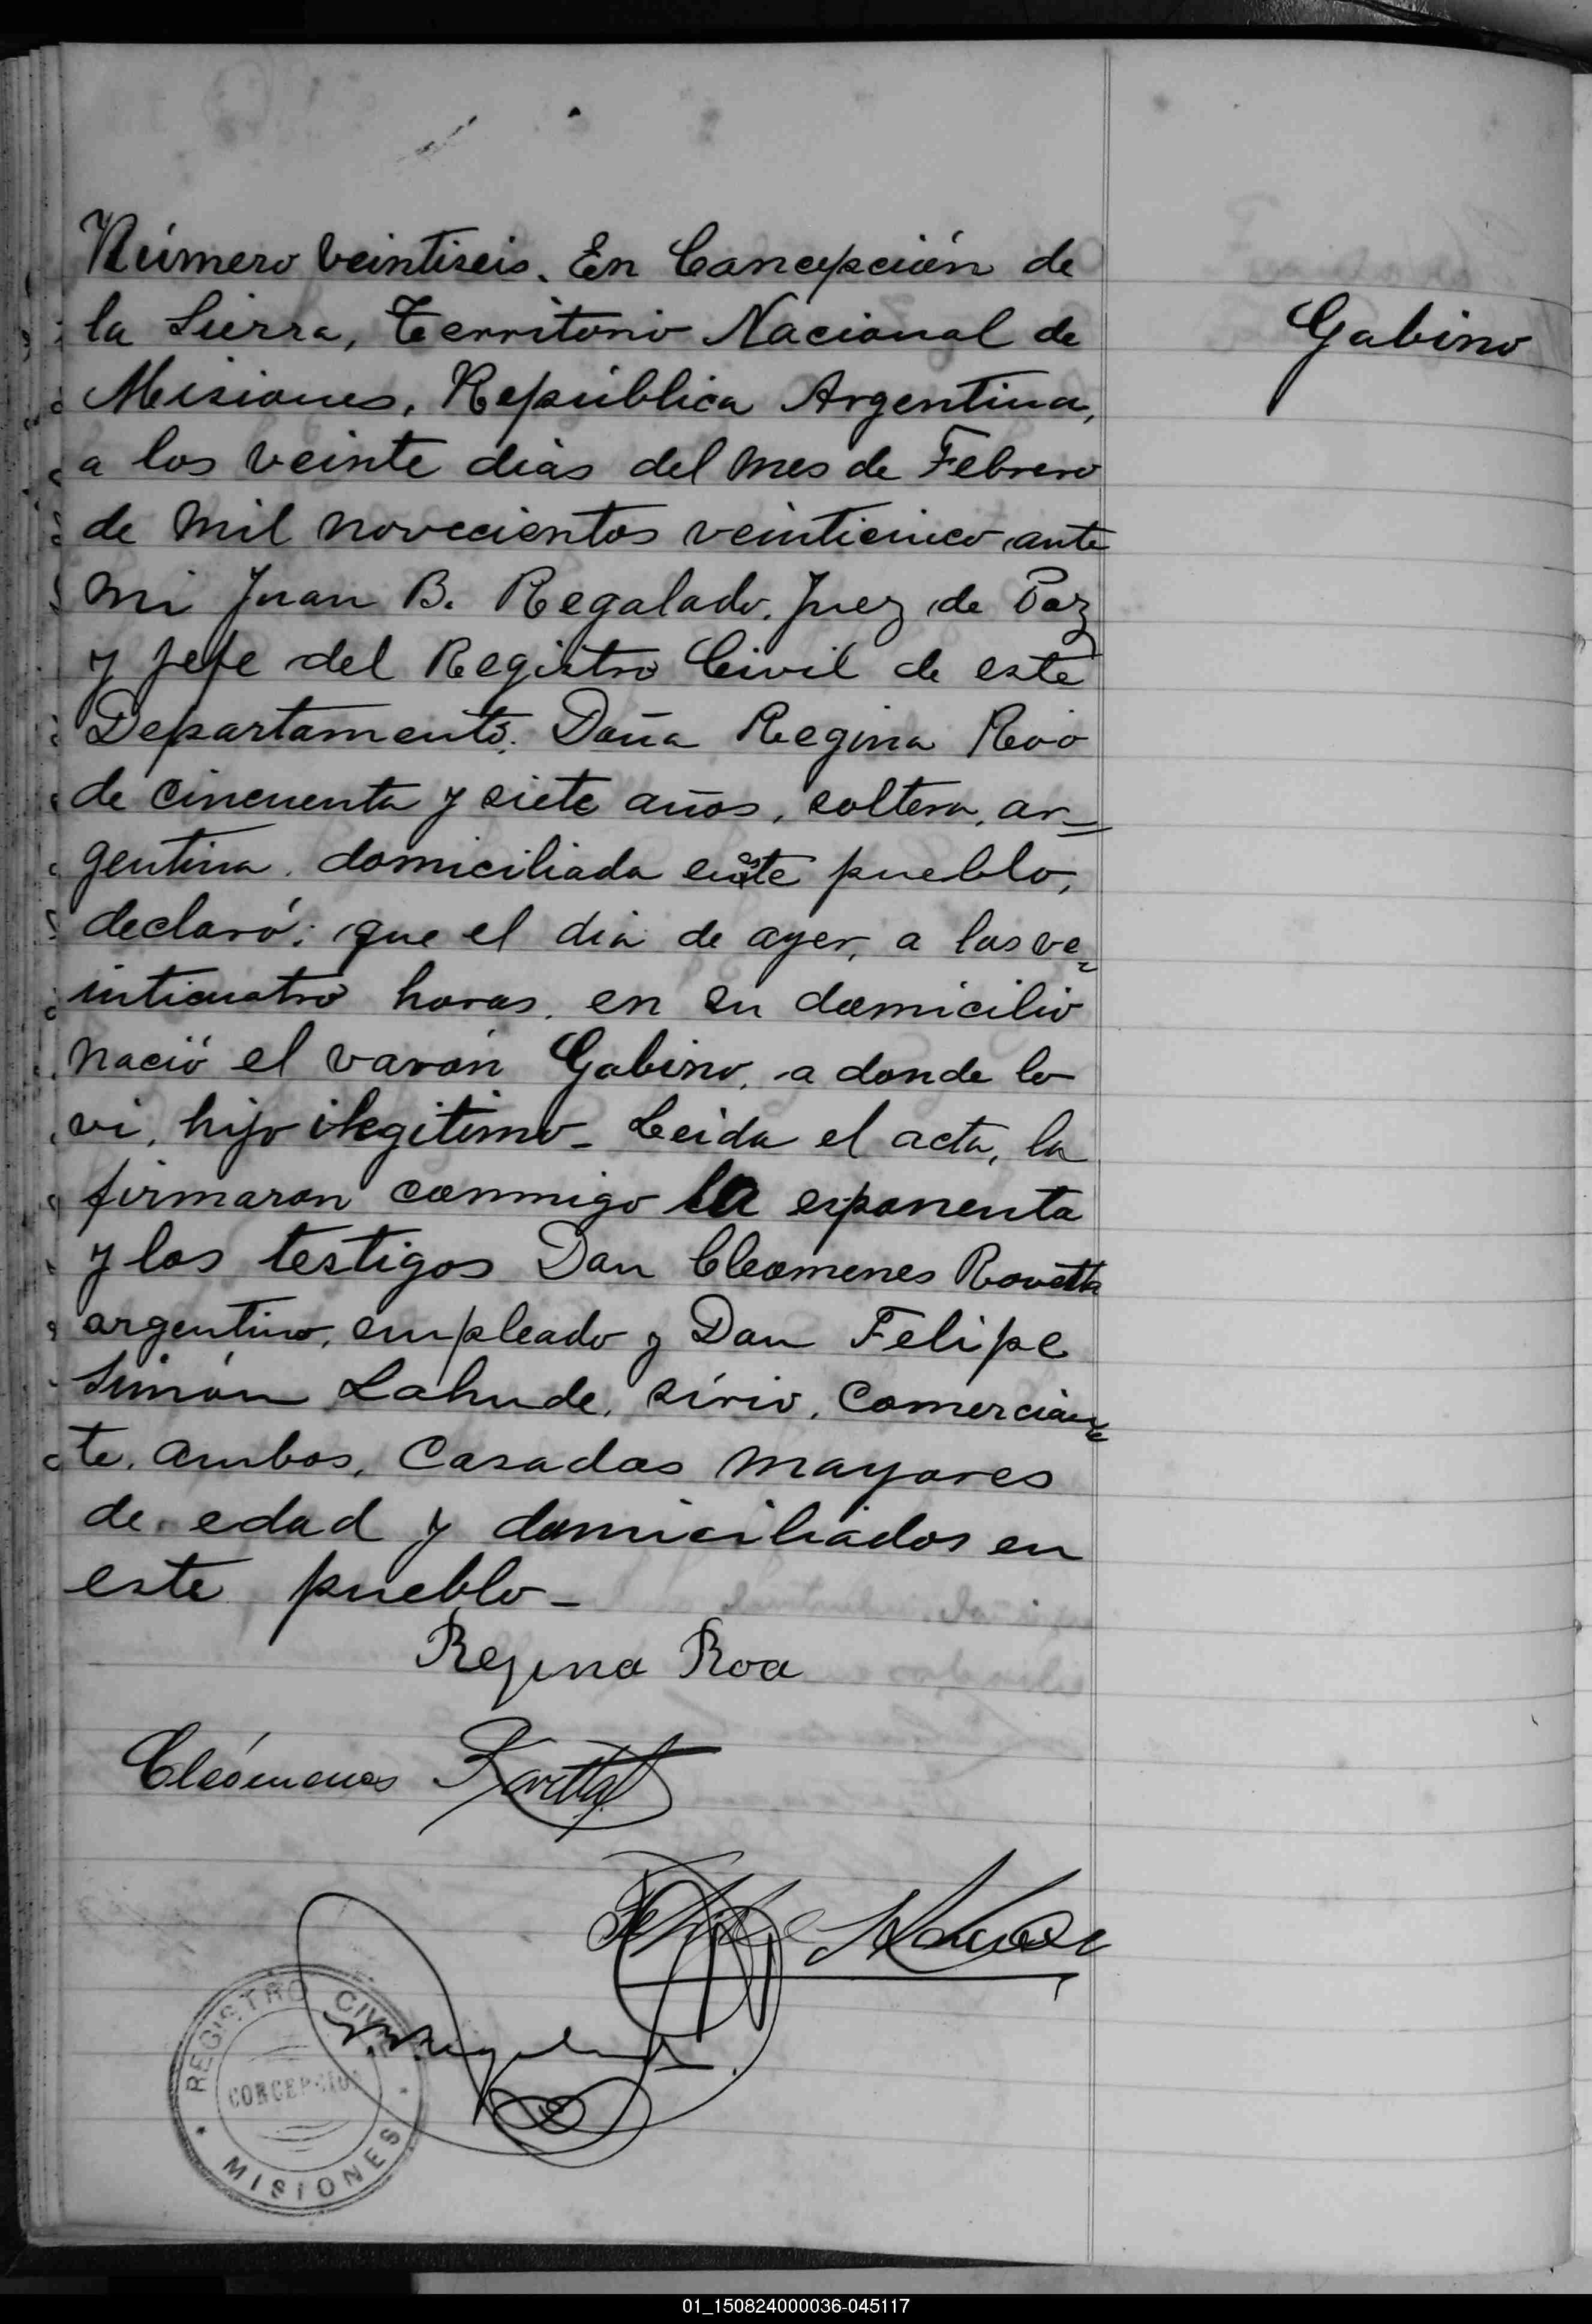 Número veintiseis. En Concepción de
la Sierra, Territorio Nacional de
Misiones, República Argentina,
a los veinte dias del mes de Febrero
de mil novecientos veinticinco, ante
mi Juan B. Regalado, Juez de Paz
y Jefe del Registro Civil de este
Departamento. Doña Regina Roa
de cincuenta y siete años, soltera, ar=
gentina, domiciliada en este pueblo,
declaró: que el dia de ayer, a las ve=
inticuatro horas, en su domicilio
nació el varón Gabino, a donde lo
vi, hijo ilegitimo_ Leida el acta, la
firmaron conmigo la exponenta
y los testigos Don Cleomenes Rovetta
argentino, empleado y Don Felipe
Simón Lahude, sírio, comercian=
te, ambos, casados mayores
de edad y domiciliados en
este pueblo_
Gabino
Regina Roa
Cleómenes Rovetta
REGISTRO CIVIL
CONCEPCION
MISIONES
01_150824000036-045117